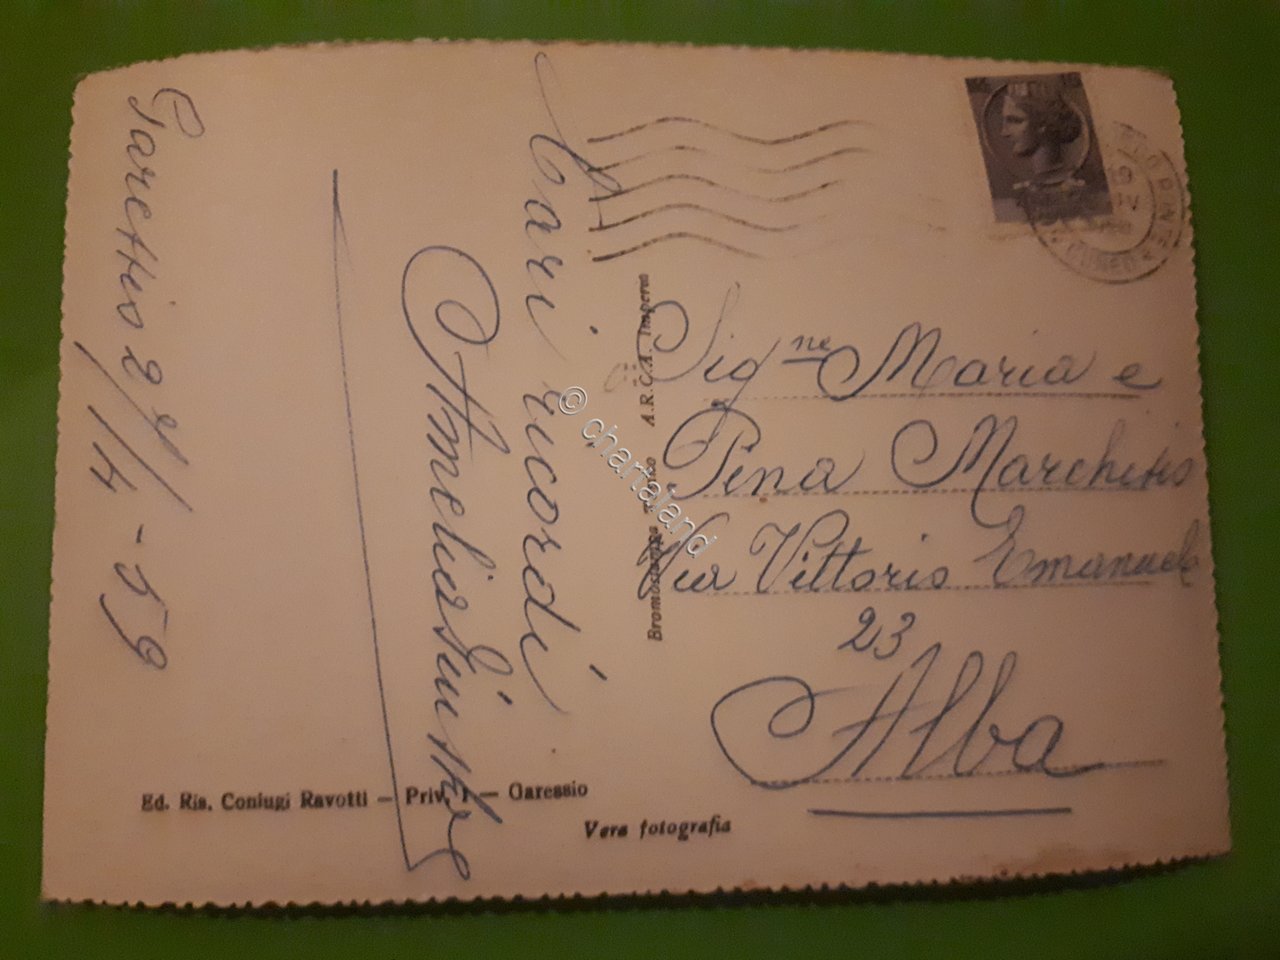 Garessio 2/4-59
Cari ricordi
Amelia
Sig.ne Maria e
Pina Marchisio
Via Vittorio Emanuele
23
Alba
Bromostampa A.R.C.A. Imperia
Ed. Ris. Coniugi Ravotti — Priv. 1 — Garessio
Vera fotografia
© chartaland